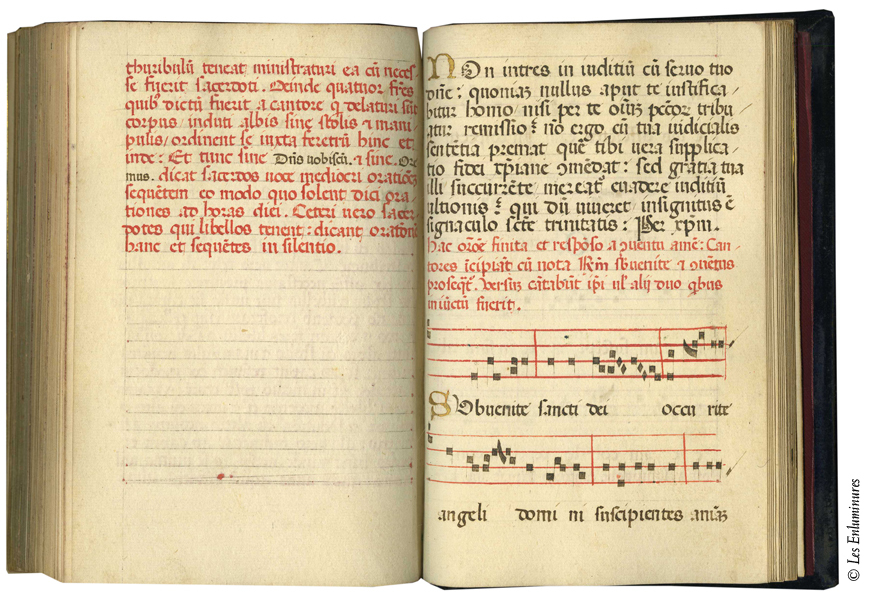 thuribulū teneat ministraturi ea cū neces-
se fuerit sacerdoti. Deinde quatuor fr̄es
quib' dictū fuerit a cantore q̄ delaturi sūt
corpus, induti albis sine stolis ⁊ mani-
pulis, ordinent se iuxta feretrū hinc et
inde: Et tunc sine Dn̄s uobiscū. ⁊ sine. Ore-
mus. dicat sacerdos uoce mediocri orationē
sequētem eo modo quo solent dici ora-
tiones ad horas diei. Ceteri uero sacer-
dotes qui libellos tenent: dicant orationē
hanc et sequētes in silentio.
NOn intres in iuditiū cū seruo tuo
dn̄e: quoniaꝫ nullus aput te iustifica-
bitur homo, nisi per te oīuꝫ pctōr tribu-
atur remissio: nō ergo cū tua iudicialis
sentētia premat quē tibi uera supplica-
tio fidei xp̄iane ꝯmēdat: sed gratia tua
illi succurrēte mereat' euadere iuditiū
ultionis: qui dū uiueret insignitus ē
signaculo scē̄te trinitatis: Per xp̄m.
Hac or̄oe finita et respōso a ꝯuentu amē: Can-
tores īcipiāt cū nota R̄m sb̄uenite ⁊ ꝯuētus
proseq̄t'. Versuꝫ cātabūt ip̄i ul' alij duo q̄bus
iniūctū fuerit.
SObuenite sancti dei occu rite
angeli domi ni suscipientes aniaꝫ
© Les Enluminures